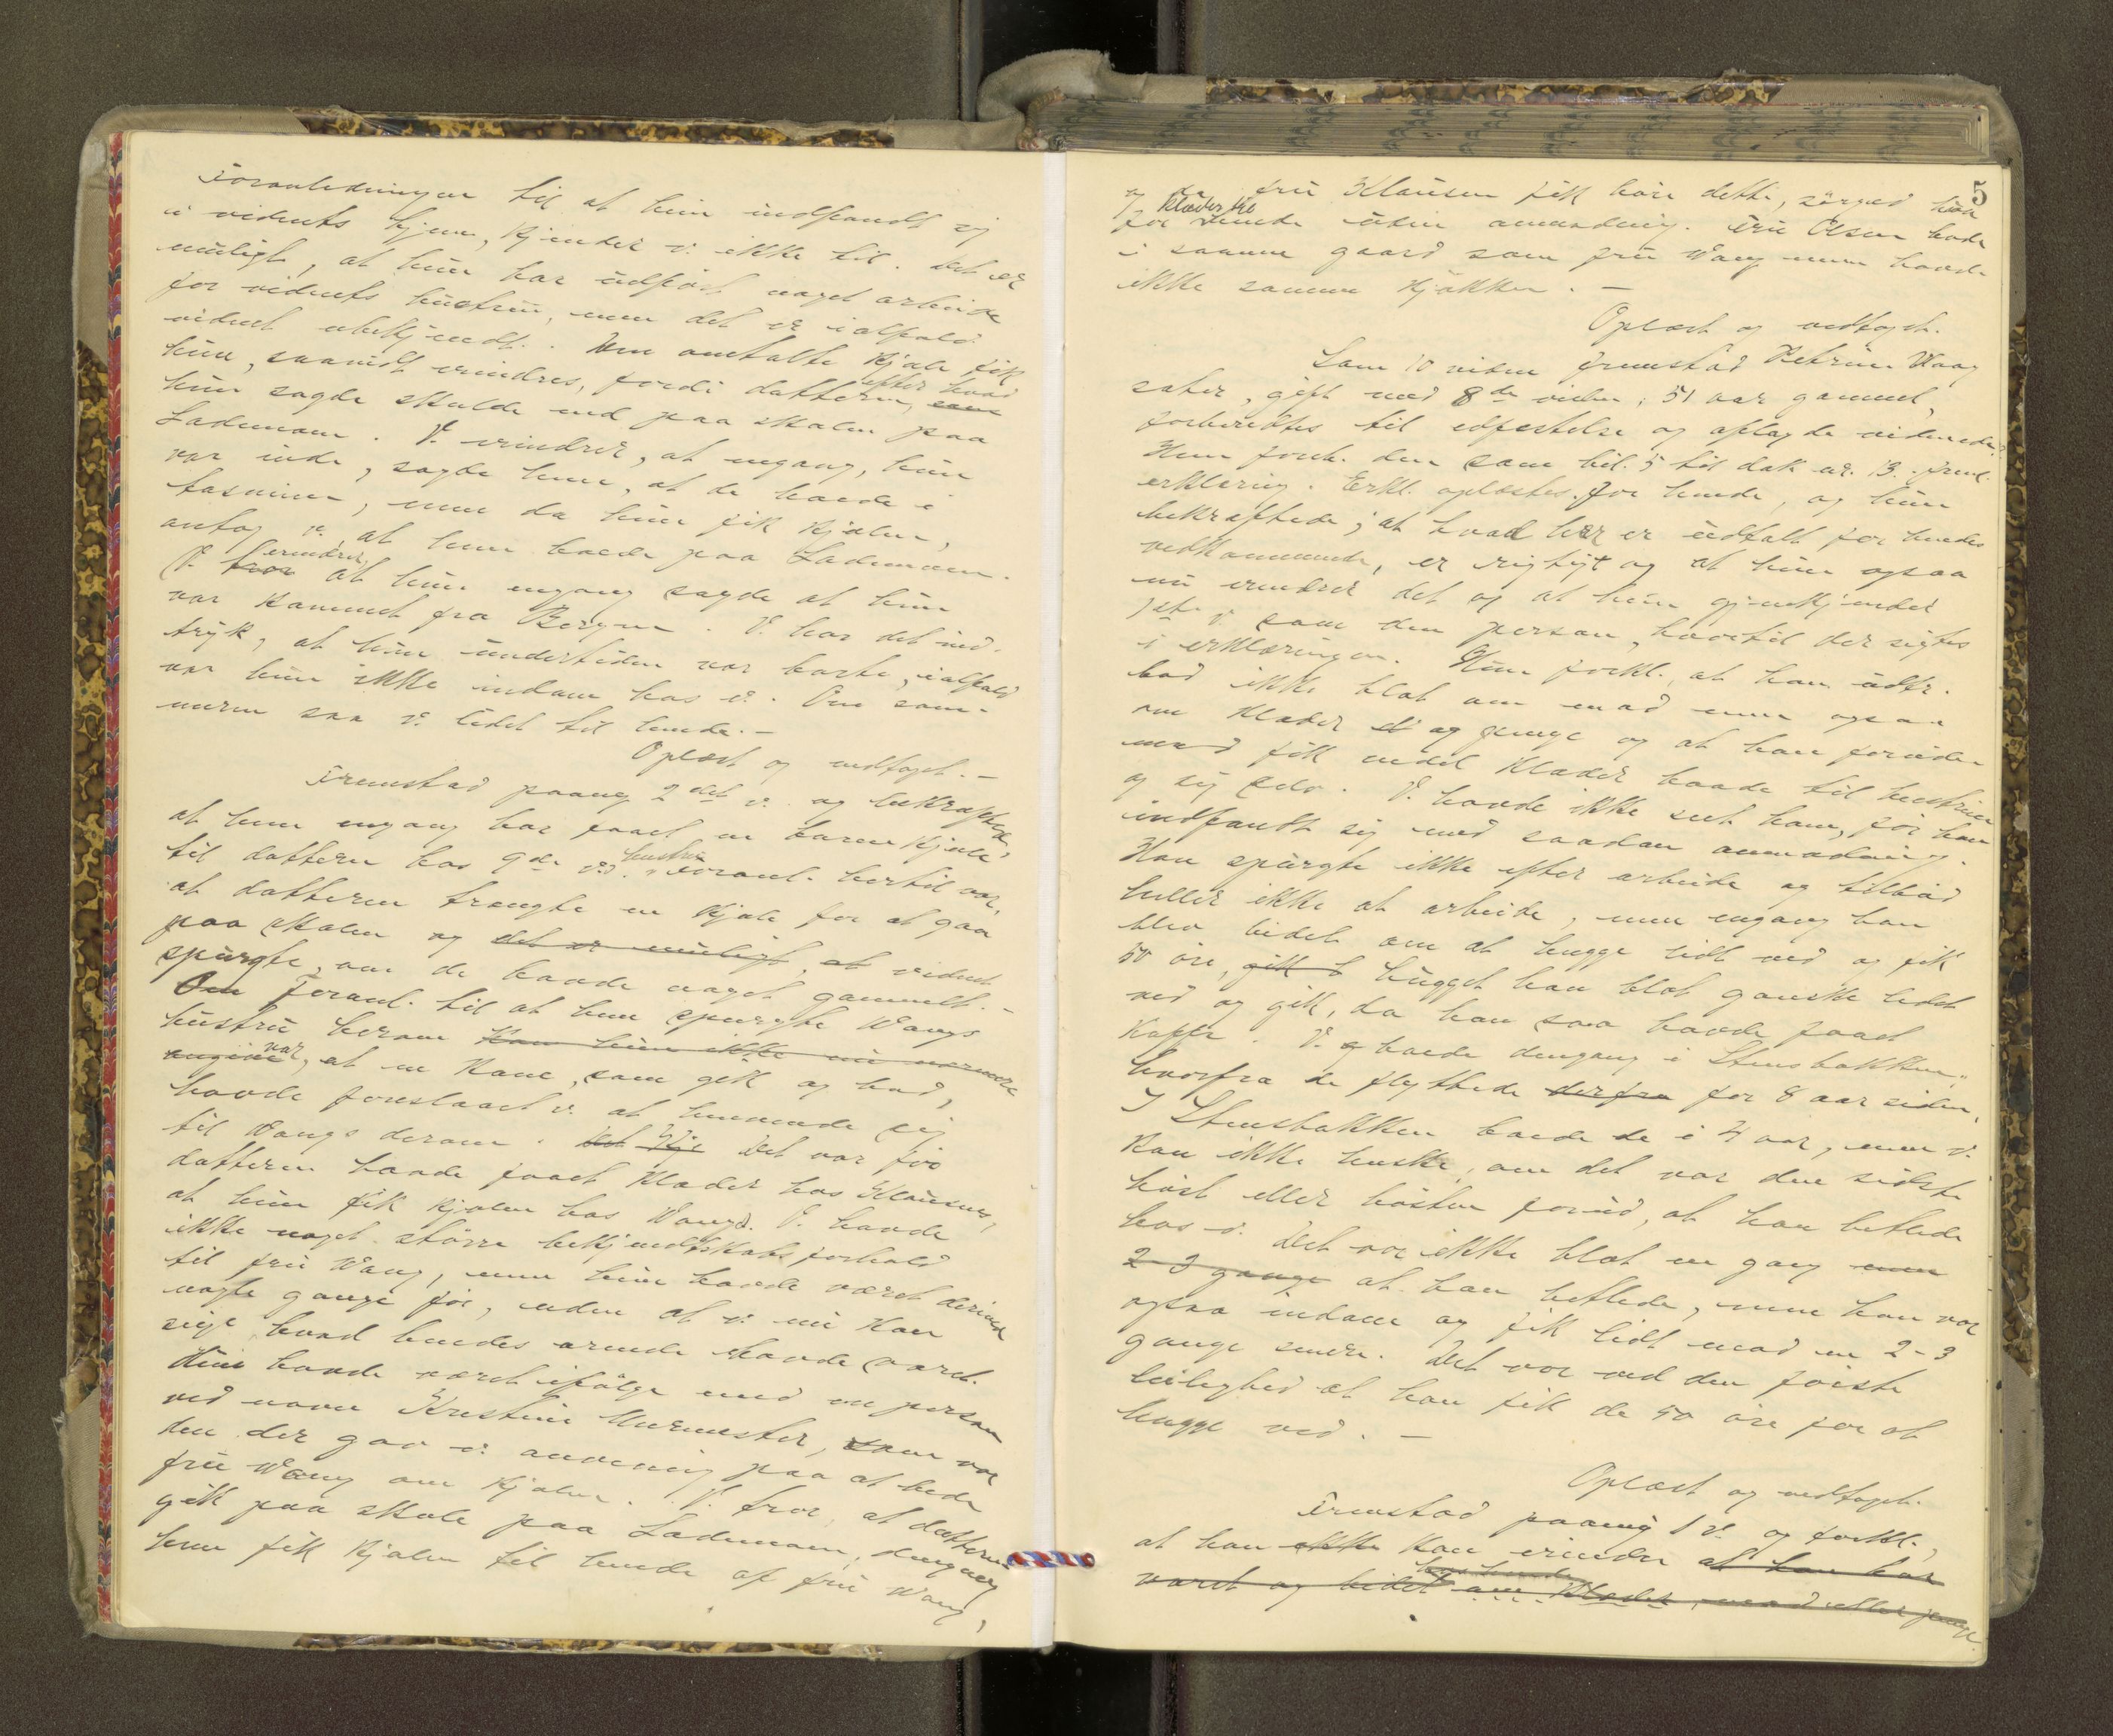 Foranledningen til at hun indfandt sig
i vidnets hjem, kjender v. ikke til. Det er
muligt, at hun har udført noget arbeide
for vidnets hustru, men det er ialfald
vidnet ubekjendt. Den omtalte kjole fik
hun, saavidt erindres, fordi datteren, som efter hvad
hun sagde skulde ned paa skolen paa
Lademoen. V. erindrer, at engang, hun
var inde, sagde hun, at de boede i
tasninen, men da hun fik kjolen,
antog v., at hun boede paa Lademoen.
V. tror erindrer, at hun engang sagde at hun
var kommet fra Bergen. V. har det ind-
tryk, at hun undertiden var borte, ialfald
var hun ikke indom hos v. Om som-
meren saa v. lidet til hende. –
Oplæst og vedtaget. –
Fremstod paany 2det v. og bekræftede,
at hun engang har faaet en barnekjole
til datteren hos 9de v.s hustru. Foranl. hertil var,
at datteren trængte en kjole for at gaa
paa skolen og det er muligt, at vidnet
spurgte, om de havde noget gammelt. –
Om Foranl. til at hun spurgte Wangs
hustru herom kan hun ikke nu nærmere
angive var, at en kone, som gik og bad,
havde foreslaaet v. at henvende sig
til Wangs derom. Det Kje Det var før
datteren havde faaet klæder hos Klausens,
at hun fik kjolen hos Wangs. V. havde
ikke noget større bekjendtskabsforhold
til fru Wang, men hun havde været derinde
nogle gange før, uden at v. nu kan
sige, hvad hendes ærinde havde været.
Hun havde været ifølge med en person
ved navn Kristine Murmester, som var
den der gav v. anvisning paa at bede
fru Wang om kjolen. V. tror, at datteren
gik paa skole paa Lademoen, dengang
hun fik kjolen til hende af fru Wang,
5
og da fru Klausen fik høre dette, sørged hun
for klæder til hende uden anmodning. Fru Olsen boede
i samme gaard som fru Wang men havde
ikke samme kjøkken. –
Oplæst og vedtaget.
Som 10 vidne fremstod Petrine Waag
sæter, gift med 8de vidne, 51 aar gammel,
forberedtes til edfæstelse og aflagde vidneed.
Hun forekl. den som bil. 5 til dok nr. 13. freml.
erklæring. Erkl. oplæstes for hende, og hun
bekræftede, at hvad her er udtalt for hendes
vedkommende, er rigtigt og at hun ogsaa
nu erindrer det og at hun gjenkjender
1ste v. som den person, hvortil der sigtes
i erklæringen. Hun forkl., at han udtr.
bad ikke blot om mad men ogsaa
om klæder og penge og at han foruden
mad fik endel klæder baade til hustruen
og sig selv. V. havde ikke seet ham, før han
indfandt sig med saadan anmodning.
Han spurgte ikke efter arbeide og tilbød
heller ikke at arbeide, men engang han
blev bedet om at hugge lidt ved og fik
50 øre, gik h hugget han blot ganske lidet
ved og gik, da han saa havde faaet
kaffe. V. boede dengang i Stensbakken,
hvorfra de flyttede derfra for 8 aar siden.
I Stensbakken boede de i 4 aar, men v.
kan ikke huske, om det var den sidste
høst eller høsten forud, at han betlede
hos v. Det var ikke blot en gang men
2-3 gange at han betlede, men han var
ogsaa indom og fik lidt mad en 2-3
gange senere. Det var ved den første
leilighed at han fik de 50 øre for at
hugge ved. –
Oplæst og vedtaget.
Fremstod paany 1 v. og forkl.,
at han ikke kan erindre at han har
været og bedet hos hende om klæder, mad eller penge.